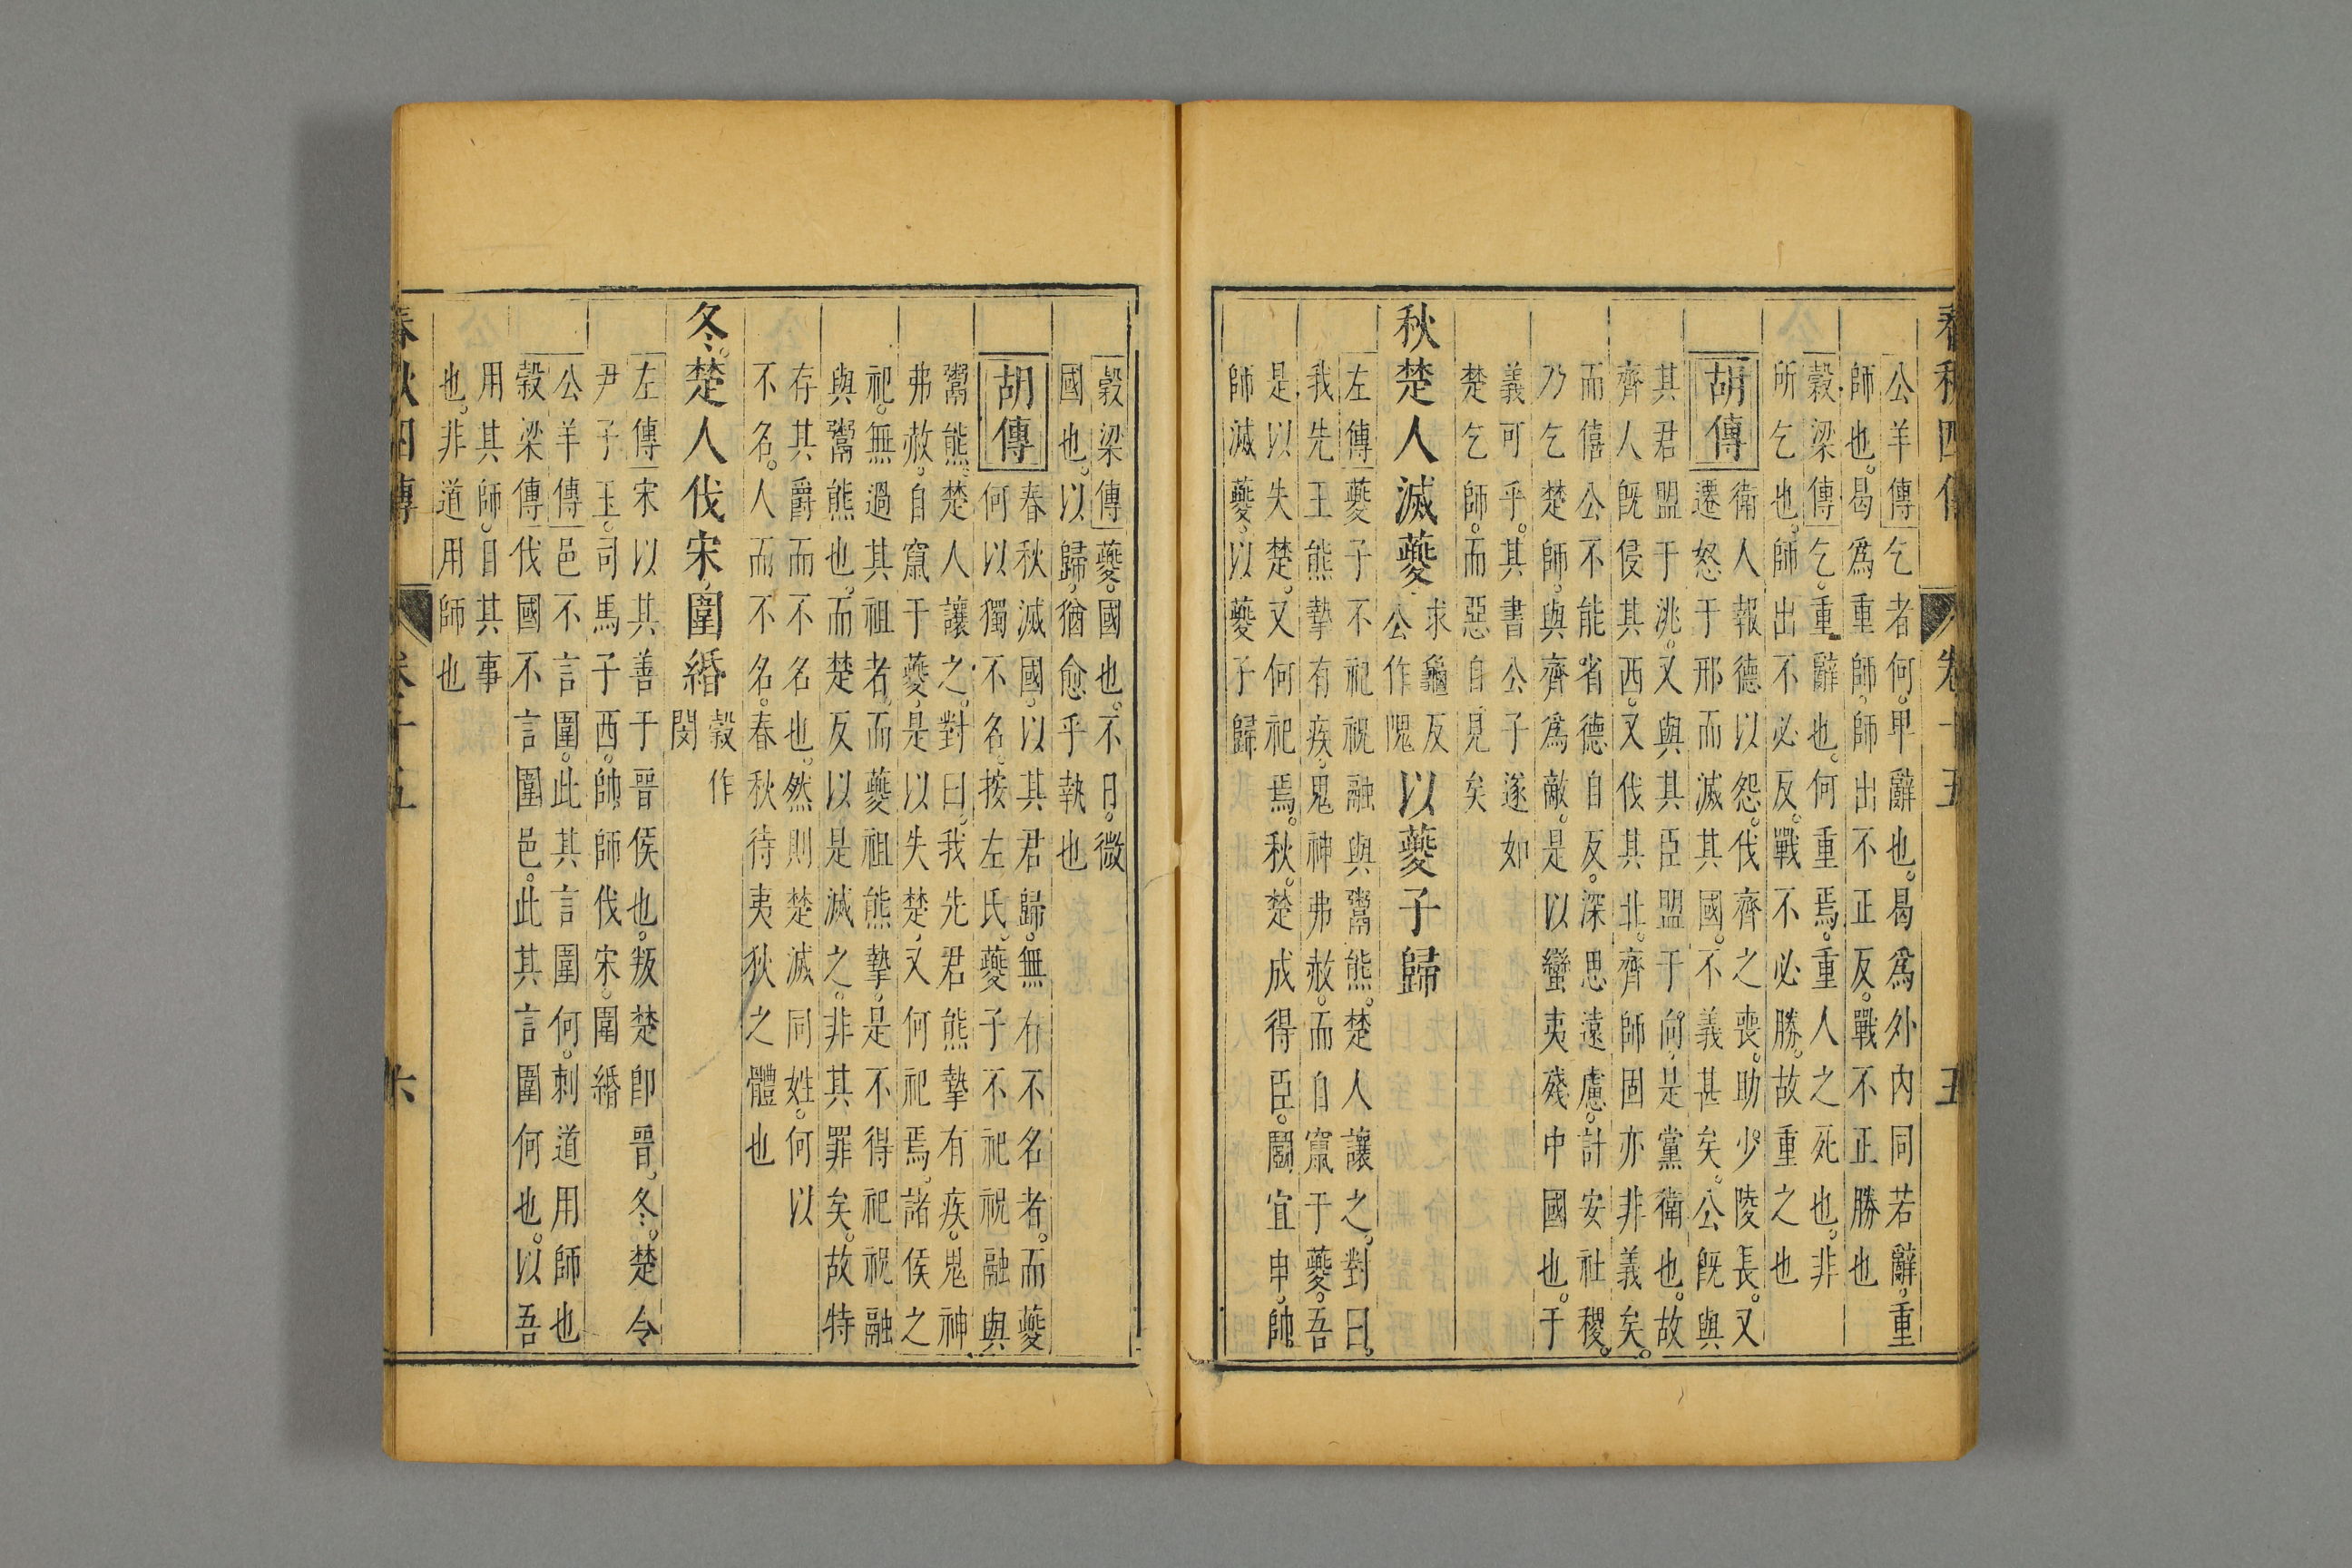 春秋四傳 卷十五 五
公羊傳乞者何。卑辭也。曷爲外内同若辭。重
師也。曷爲重師。師出不正反。戰不正勝也
穀梁傳乞。重辭也。何重焉。重人之死也。非
所乞也。師出不必反。戰不必勝。故重之也
胡傳
衛人報德以怨。伐齊之喪。助少陵長。又
遷怒于邢而滅其國。不義甚矣。公旣與
其君盟于洮。又與其臣盟于向。是黨衛也。故
齊人旣侵其西。又伐其北。齊師固亦非義矣。
而僖公不能省德自反。深思遠慮。計安社稷。
乃乞楚師。與齊爲敵。是以蠻夷殘中國也。于
義可乎。其書公子遂如
楚乞師。而惡自見矣
秋楚人滅夔
求龜反
公作隗
以夔子歸
左傳夔子不祀祝融與鬻熊。楚人讓之。對曰。
我先王熊摯有疾。鬼神弗赦。而自竄于夔。吾
是以失楚。又何祀焉。秋。楚成得臣。鬬宜申。帥
師滅夔。以夔子歸
穀梁傳夔。國也。不日。微
國也。以歸。猶愈乎執也
胡傳
春秋滅國。以其君歸。無有不名者。而夔
何以獨不名。按左氏。夔子不祀祝融與
鬻熊。楚人讓之。對曰。我先君熊摯有疾。鬼神
弗赦。自竄于夔。是以失楚。又何祀焉。諸侯之
祀。無過其祖者。而夔祖熊摯。是不得祀祝融
與鬻熊也。而楚反以是滅之。非其罪矣。故特
存其爵而不名也。然則楚滅同姓。何以
不名。人而不名。春秋待夷狄之體也
冬。楚人伐宋。圍緡
穀作
閔
左傳宋以其善于晉侯也。叛楚卽晉。冬。楚令
尹子玉。司馬子西。帥師伐宋。圍緡
公羊傳邑不言圍。此其言圍何。刺道用師也
穀梁傳伐國不言圍邑。此其言圍何也。以吾
用其師。目其事
也。非道用師也
春秋四傳 卷十五 六